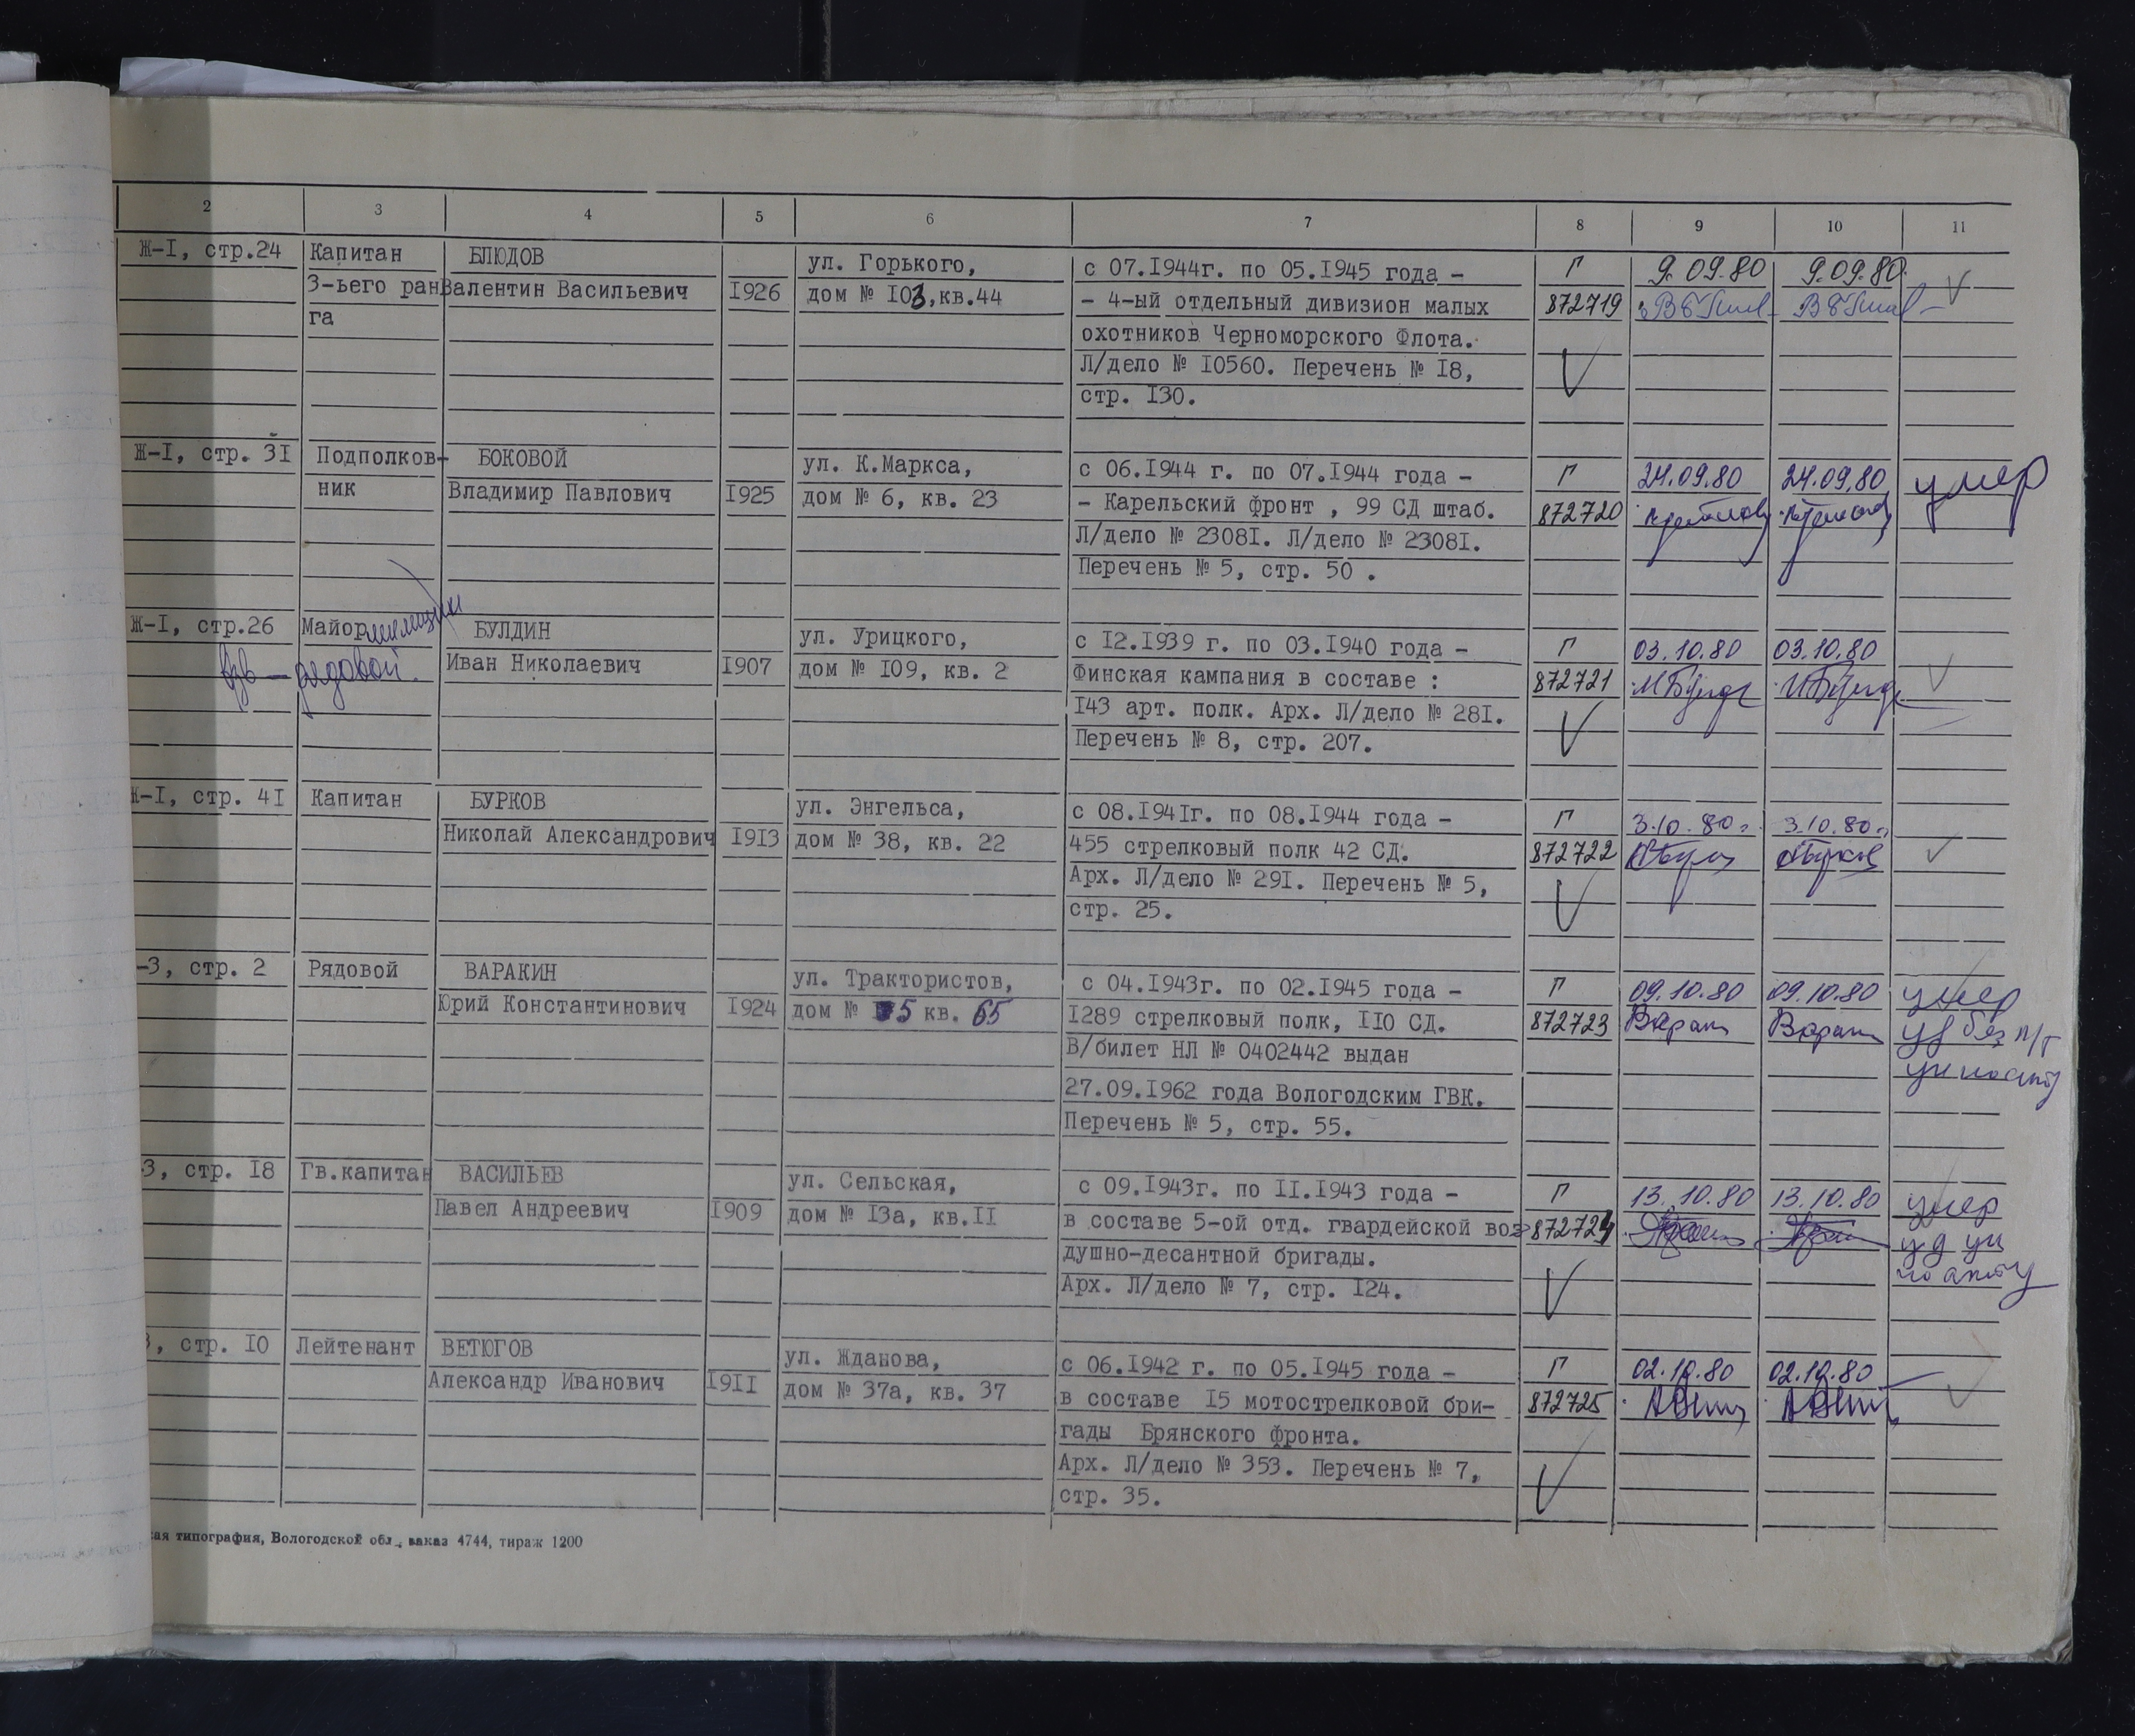 2 3 4 5 6 7 8 9 10 11
Ж-I, стр.24 Капитан БЛЮДОВ ул. Горького, с 07.I944г. по 05.I945 года - Г 9.09.80 9.09.80
3-ьего ран Валентин Васильевич I926 дом № I03,кв.44 - 4-ый отдельный дивизион малых 872719
га охотников Черноморского Флота.
Л/дело № I0560. Перечень № I8,
стр. I30.
Ж-I, стр. 3I Подполков- БОКОВОЙ ул. К.Маркса, с 06.I944 г. по 07.I944 года - Г 24.09.80 24.09.80 умер
ник Владимир Павлович I925 дом № 6, кв. 23 - Карельский фронт , 99 СД штаб. 872720
Л/дело № 2308I. Л/дело № 2308I.
Перечень № 5, стр. 50 .
Ж-I, стр.26 Майор милиции БУЛДИН ул. Урицкого, с I2.I939 г. по 03.I940 года - Г 03.10.80 03.10.80
рядовой. Иван Николаевич I907 дом № I09, кв. 2 Финская кампания в составе : 872721
I43 арт. полк. Арх. Л/дело № 28I.
Перечень № 8, стр. 207.
Ж-I, стр. 4I Капитан БУРКОВ ул. Энгельса, с 08.I94Iг. по 08.I944 года - Г 3.10.80г. 3.10.80г.
Николай Александрович I9I3 дом № 38, кв. 22 455 стрелковый полк 42 СД. 872722
Арх. Л/дело № 29I. Перечень № 5,
стр. 25.
-3, стр. 2 Рядовой ВАРАКИН ул. Трактористов, с 04.I943г. по 02.I945 года - Г 09.10.80 09.10.80 умер
Юрий Константинович I924 дом № 5 кв. 65 I289 стрелковый полк, II0 СД. 872723 уд без п/г
В/билет НЛ № 0402442 выдан ун по акту
27.09.I962 года Вологодским ГВК.
Перечень № 5, стр. 55.
3, стр. I8 Гв.капитан ВАСИЛЬЕВ ул. Сельская, с 09.I943г. по II.I943 года - Г 13.10.80 13.10.80 умер
Павел Андреевич I909 дом № I3а, кв.II в составе 5-ой отд. гвардейской воз- 872724 уд ун
душно-десантной бригады. по акту
Арх. Л/дело № 7, стр. I24.
3, стр. I0 Лейтенант ВЕТЮГОВ ул. Жданова, с 06.I942 г. по 05.I945 года - Г 02.10.80 02.10.80
Александр Иванович I9II дом № 37а, кв. 37 в составе I5 мотострелковой бри- 872725
гады Брянского фронта.
Арх. Л/дело № 353. Перечень № 7,
стр. 35.
кая типография, Вологодской обл., заказ 4744, тираж 1200